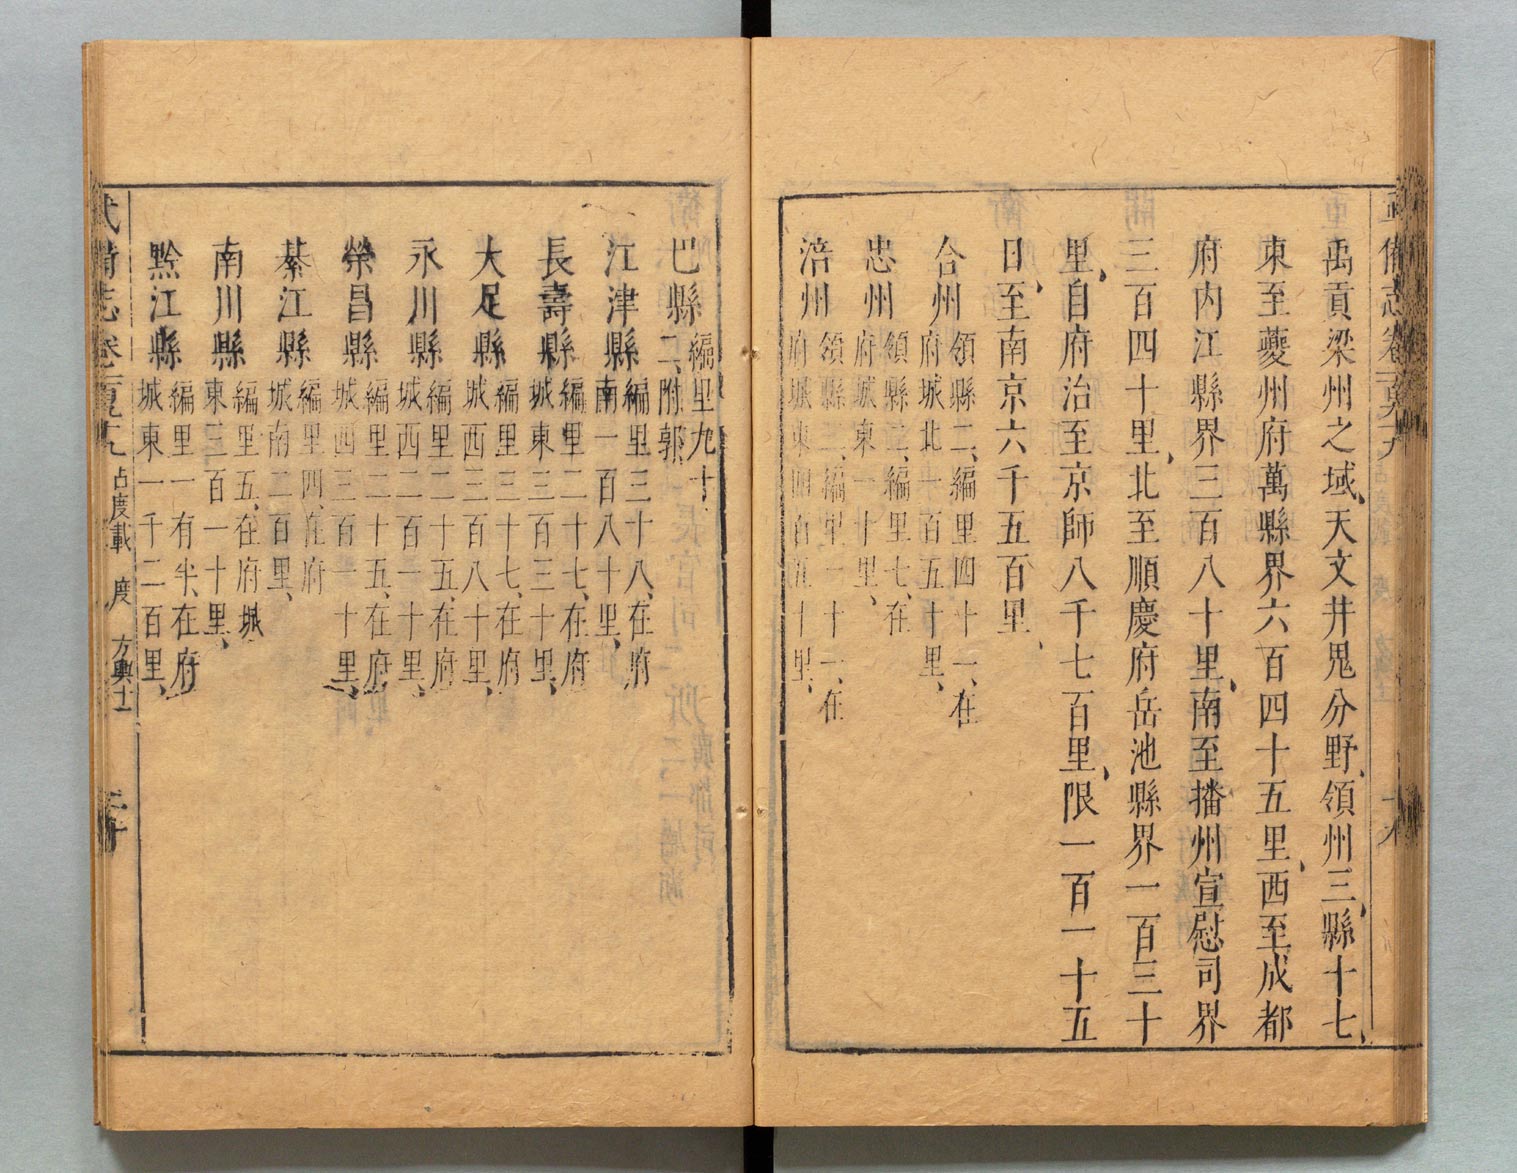 禹貢梁州之域、天文井鬼分野、領州三、縣十七、
東至夔州府萬縣界六百四十五里、西至成都
府内江縣界三百八十里、南至播州宣慰司界
三百四十里、北至順慶府岳池縣界一百三十
里、自府治至京師八千七百里、限一百一十五
日、至南京六千五百里、
合州
領縣二、編里四十一、在
府城北一百五十里、
忠州
領縣二、編里七、在
府城東一十里、
涪州
領縣三、編里一十一、在
府城東四百五十里、
巴縣
編里九十
二、附郭、
江津縣
編里三十八、在府
南一百八十里、
長壽縣
編里二十七、在府
城東三百三十里、
大足縣
編里三十七、在府
城西三百八十里、
永川縣
編里二十五、在府
城西二百一十里、
榮昌縣
編里二十五、在府
城西三百一十里、
綦江縣
編里四、在府
城南二百里、
南川縣
編里五、在府城
東三百一十里、
黔江縣
編里一有半、在府
城東一千二百里、
武備志卷 占度載 度 方輿十一